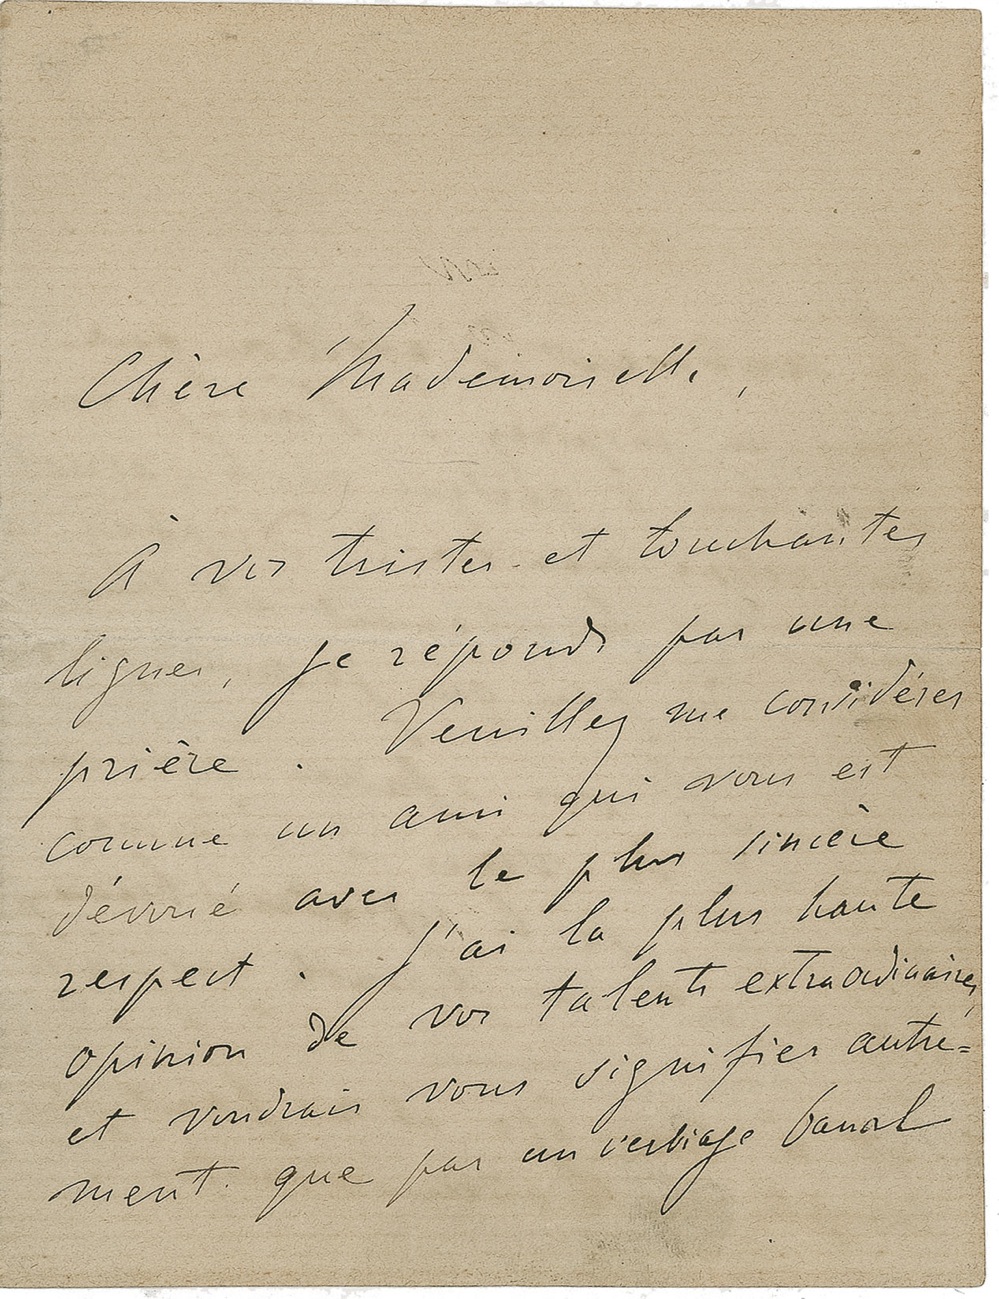 Chère Mademoiselle,
À vos tristes et touchantes
lignes, je réponds par une
prière. Veuillez me considérer
comme un ami qui vous est
dévoué avec le plus sincère
respect. J'ai la plus haute
opinion de vos talents extraordinaires,
et voudrais vous signifier autre=
ment que par un verbiage banal